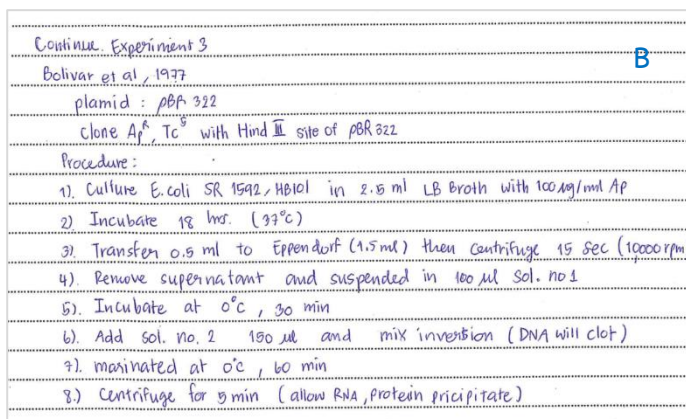 Continue. Experiment 3
B
Bolivar et al, 1977
plamid : pBR 322
clone Ap^R, Tc^S with Hind III site of pBR 322
Procedure :
1). Culture E.coli SR 1592, HB101 in 2.5 ml LB Broth with 100 µg/ml Ap
2) Incubate 18 hrs. (37°c)
3). Transfer 0.5 ml to Eppendorf (1.5ml) then centrifuge 15 sec (10000 rpm
4). Remove supernatant and suspended in 100 µl Sol. no 1
5). Incubate at 0°c, 30 min
6). Add Sol. no. 2 150 µl and mix invertion (DNA will clot)
7). marinated at 0°c, 60 min
8.) Centrifuge for 5 min (allow RNA, protein pricipitate)